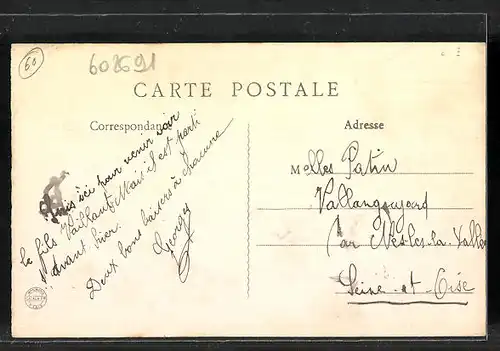 60
602691
CARTE POSTALE
Correspondance
Adresse
Suis ici pour venir voir
le fils Vaillant. Mais il est parti
d'avant hier.
Deux bons baisers à chacune
Georges
Melles Patin
Vallangoujard
par Nesles-la-Vallée
Seine-et-Oise